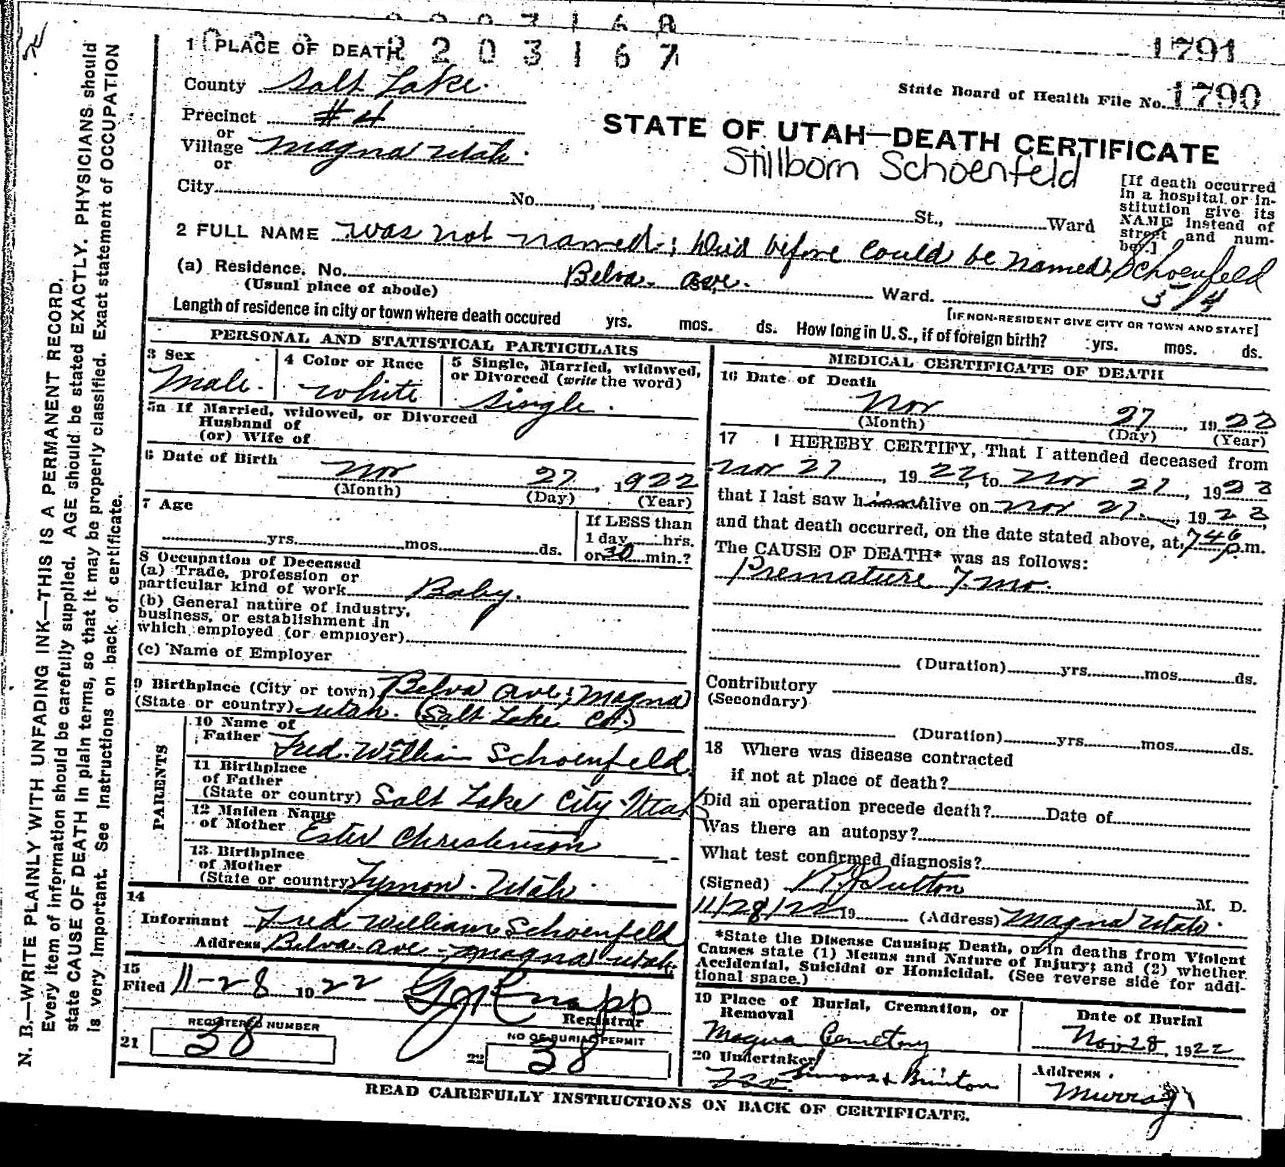 2203167
1791
1 PLACE OF DEATH
County Salt Lake
State Board of Health File No. 1790
Precinct #4
or
Village Magna Utah
or
STATE OF UTAH—DEATH CERTIFICATE
Stillborn Schoenfeld
City No. St., Ward
[If death occurred in a hospital or in-
stitution give its
NAME instead of
street and num-
ber.]
2 FULL NAME was not named; Died before could be named Schoenfeld
(a) Residence, No. Belva ave. Ward.
(Usual place of abode)
[IF NON-RESIDENT GIVE CITY OR TOWN AND STATE]
Length of residence in city or town where death occured yrs. mos. ds. How long in U.S., if of foreign birth? yrs. mos. ds.
PERSONAL AND STATISTICAL PARTICULARS
3 Sex
Male.
4 Color or Race
White
5 Single, Married, widowed,
or Divorced (write the word)
Single.
5a If Married, widowed, or Divorced
Husband of
(or) Wife of
6 Date of Birth
Nov 27, 1922
(Month) (Day) (Year)
7 Age
yrs. mos. ds.
If LESS than
1 day hrs.
or 30 min.?
8 Occupation of Deceased
(a) Trade, profession or
particular kind of work Baby.
(b) General nature of industry,
business, or establishment in
which employed (or employer)
(c) Name of Employer
9 Birthplace (City or town) Belva Ave; Magna
(State or country) Utah. (Salt Lake Co.)
PARENTS
10 Name of
Father Fred. William Schoenfeld
11 Birthplace
of Father
(State or country) Salt Lake City Utah
12 Maiden Name
of Mother Ester Christenson
13 Birthplace
of Mother
(State or country) Lymon. Utah
14
Informant Fred William Schoenfeld
Address Belva Ave - Magna Utah
15
Filed 11-28 1922
Registrar
REGISTERED NUMBER
21 38
NO OF BURIAL PERMIT
22 38
MEDICAL CERTIFICATE OF DEATH
16 Date of Death
Nov 27, 1922
(Month) (Day) (Year)
17 I HEREBY CERTIFY, That I attended deceased from
Nov 27, 1922 to Nov 27, 1922
that I last saw him alive on Nov 27, 1922,
and that death occurred, on the date stated above, at 7 46 p.m.
The CAUSE OF DEATH* was as follows:
Premature 7 mo.
(Duration) yrs. mos. ds.
Contributory
(Secondary)
(Duration) yrs. mos. ds.
18 Where was disease contracted
if not at place of death?
Did an operation precede death? Date of
Was there an autopsy?
What test confirmed diagnosis?
(Signed) M. D.
11/28/22 19 (Address) Magna Utah.
*State the Disease Causing Death, or in deaths from Violent
Causes state (1) Means and Nature of Injury; and (2) whether
Accidental, Suicidal or Homicidal. (See reverse side for addi-
tional space.)
19 Place of Burial, Cremation, or
Removal
Magna Cemetery
Date of Burial
Nov 28, 1922
20 Undertaker
Address
Murray
READ CAREFULLY INSTRUCTIONS ON BACK OF CERTIFICATE.
N. B.—WRITE PLAINLY WITH UNFADING INK—THIS IS A PERMANENT RECORD.
Every item of information should be carefully supplied. AGE should be stated EXACTLY. PHYSICIANS should
state CAUSE OF DEATH in plain terms, so that it may be properly classified. Exact statement of OCCUPATION
is very important. See instructions on back of certificate.